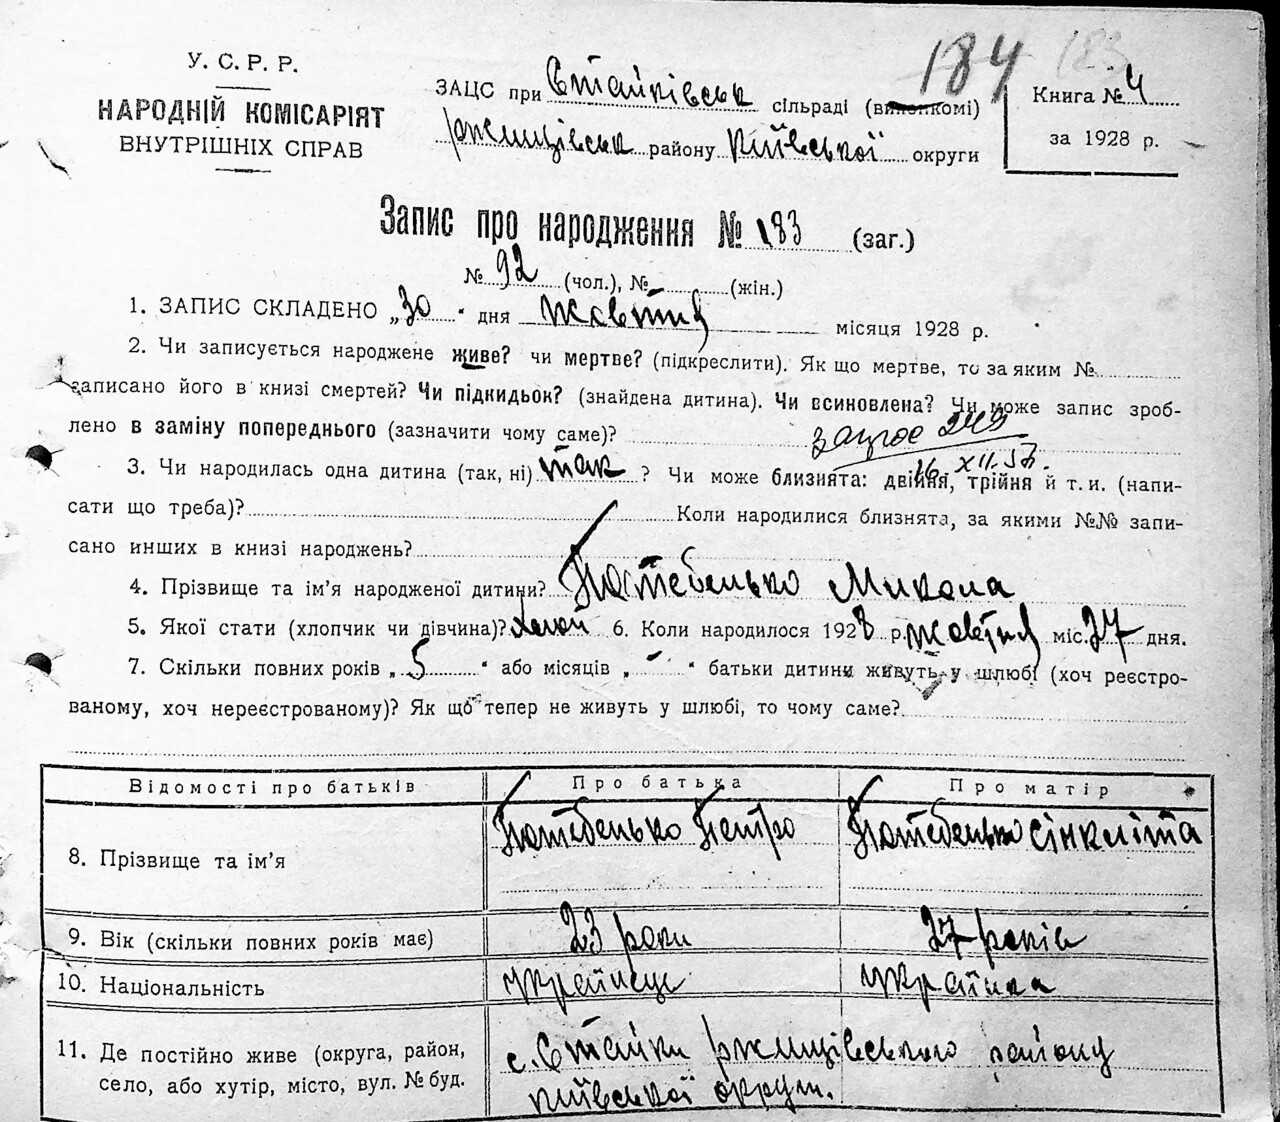 184 183
У. С. Р. Р.
НАРОДНІЙ КОМІСАРІЯТ
ВНУТРІШНІХ СПРАВ
ЗАЦС при Стайківськ сільраді (виконкомі)
ржищівськ району Київської округи
Книга № 4
за 1928 р.
Запис про народження № 183 (заг.)
№ 92 (чол.), № (жін.)
1. ЗАПИС СКЛАДЕНО „30" дня жовтня місяця 1928 р.
2. Чи записується народжене живе? чи мертве? (підкреслити). Як що мертве, то за яким №
записано його в книзі смертей? Чи підкидьок? (знайдена дитина). Чи всиновлена? Чи може запис зроб-
лено в заміну попереднього (зазначити чому саме)?
16 XII.
3. Чи народилась одна дитина (так, ні) так ? Чи може близнята: двійня, трійня й т. и. (напи-
сати що треба)? Коли народилися близнята, за якими №№ запи-
сано инших в книзі народжень?
4. Прізвище та ім'я народженої дитини? Потебенько Микола
5. Якої стати (хлопчик чи дівчина)? 6. Коли народилося 1928 р. жовтня міс. 27 дня.
7. Скільки повних років „5" або місяців „-" батьки дитини живуть у шлюбі (хоч реєстро-
ваному, хоч нереєстрованому)? Як що тепер не живуть у шлюбі, то чому саме?
Відомості про батьків Про батька Про матір
8. Прізвище та ім'я Потебенько Петро Потебенько Сінкліта
9. Вік (скільки повних років має) 23 роки 27 років
10. Національність Українець Українка
11. Де постійно живе (округа, район,
село, або хутір, місто, вул. № буд.
с. Стайки ржищівського району
Київської округи.